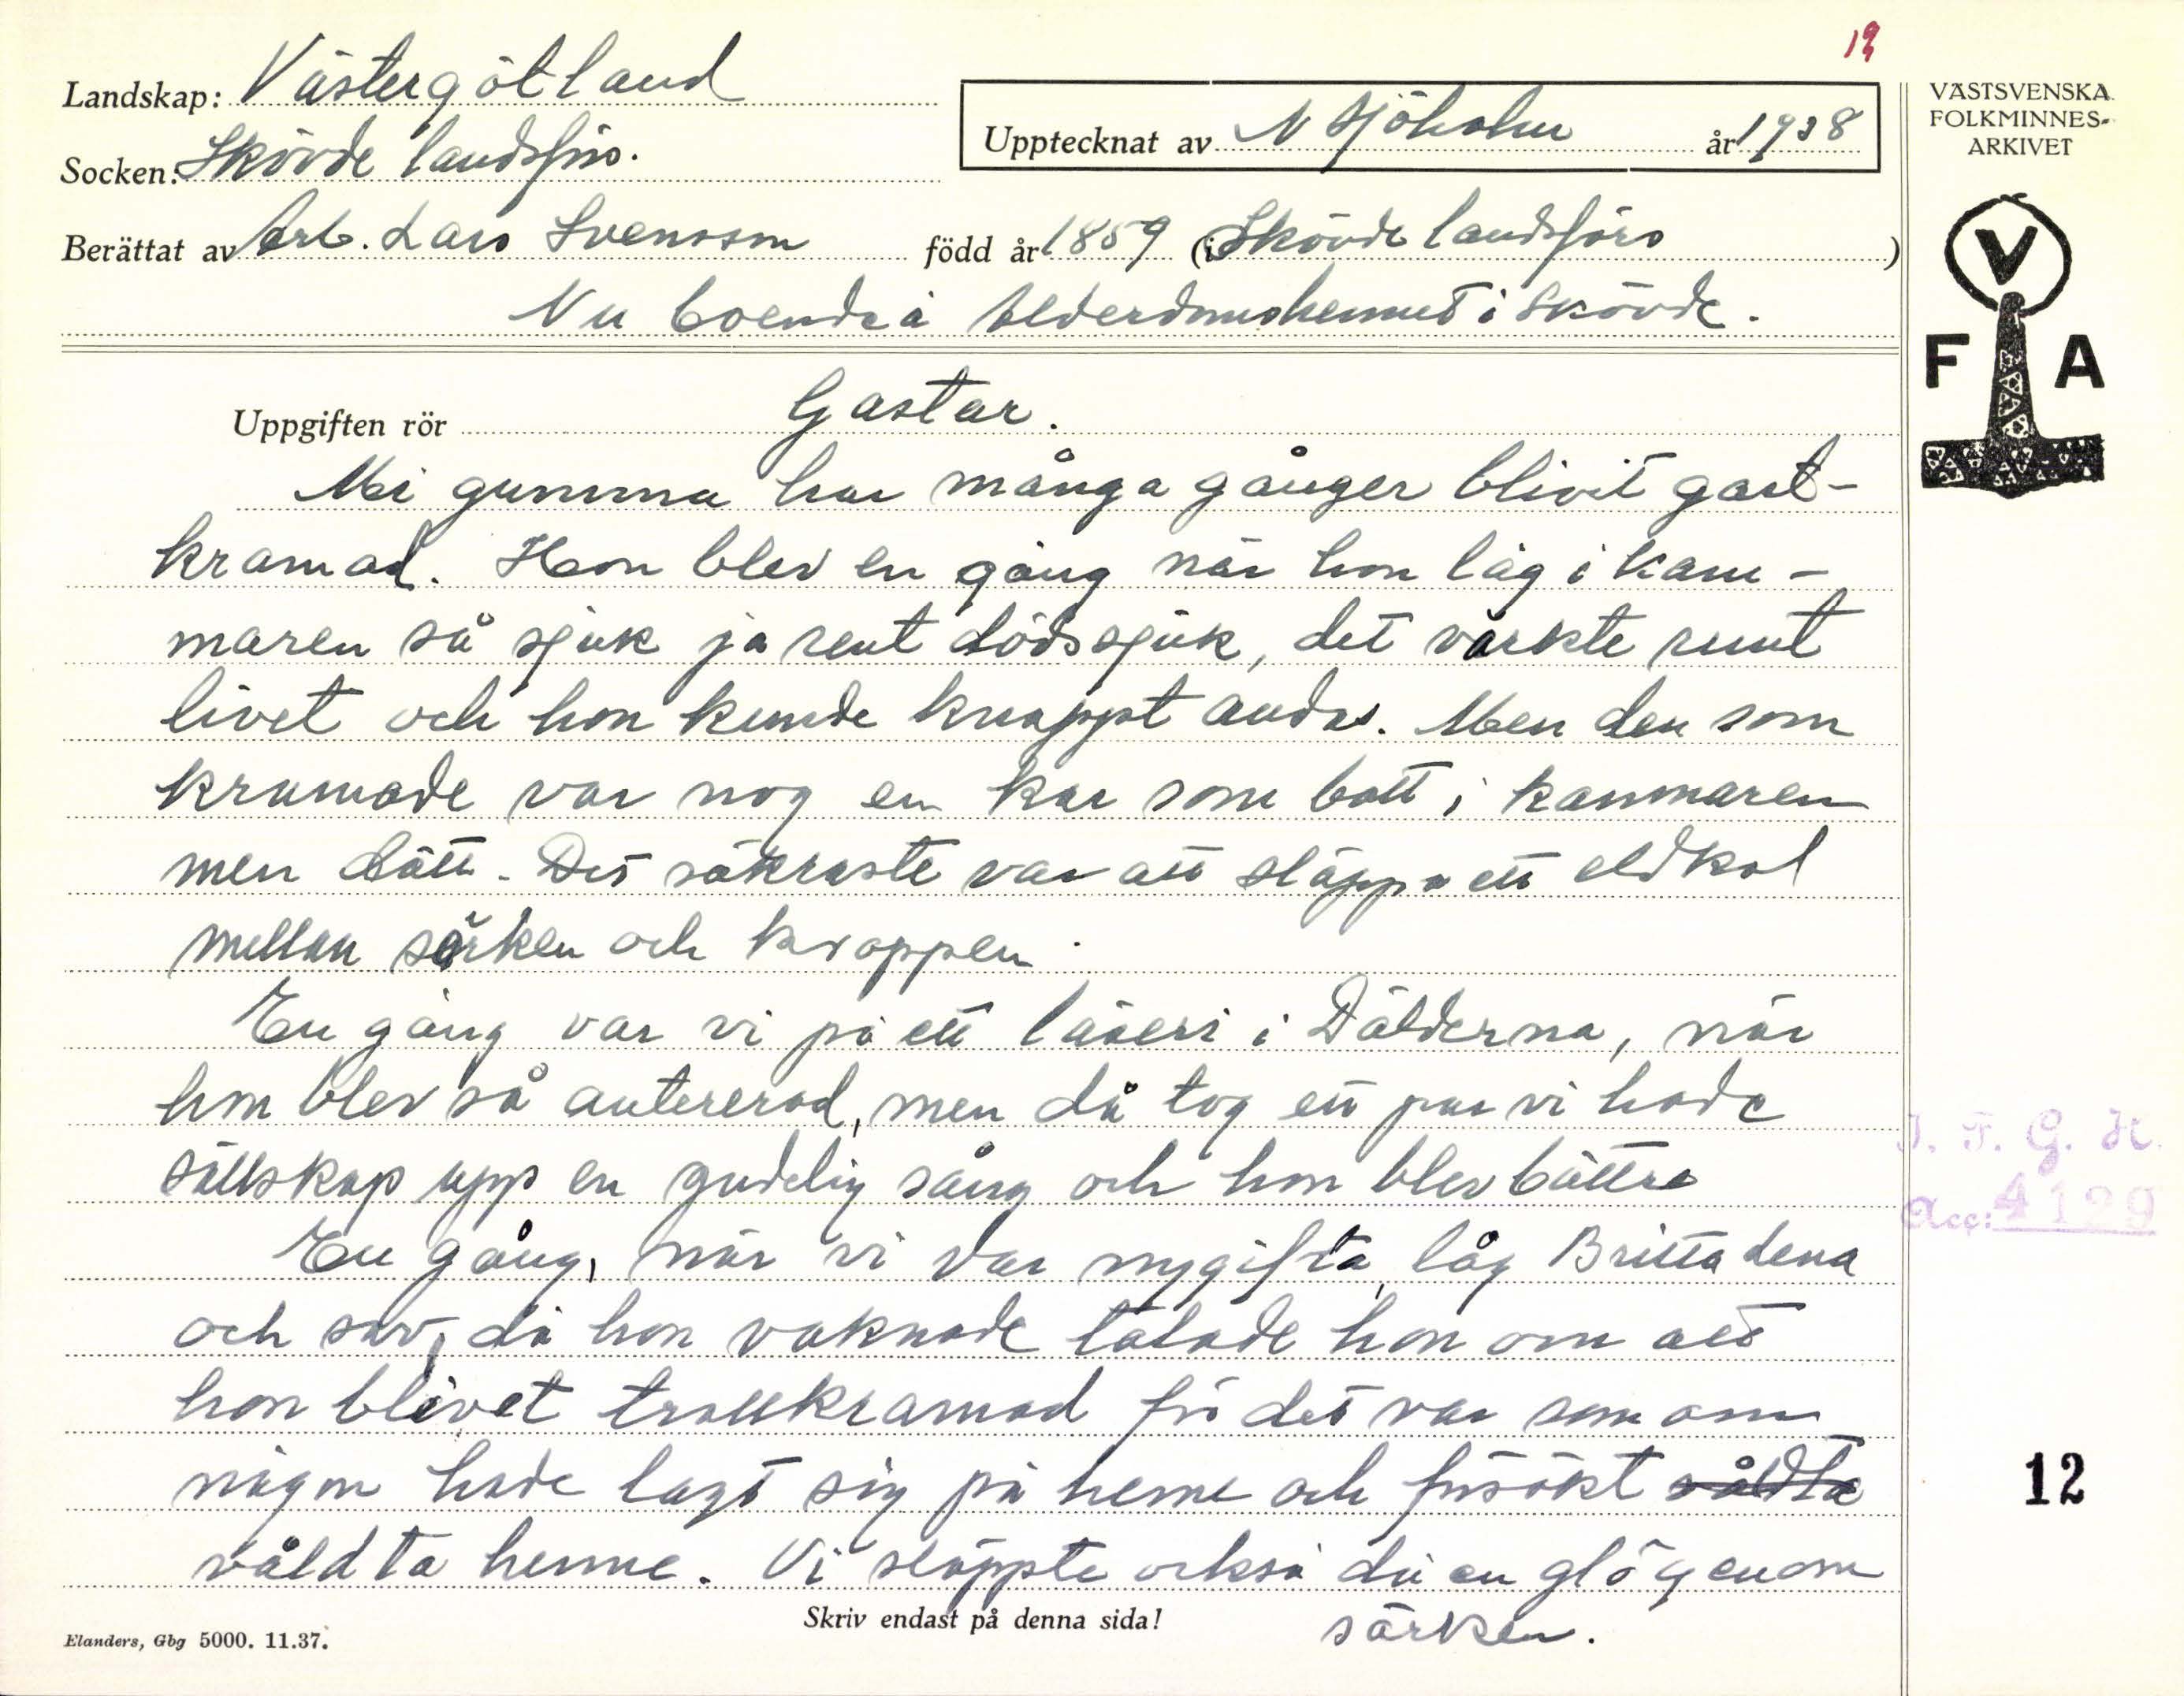 13
Landskap: Västergötland
Socken: Skövde landsförs.
Upptecknat av N Sjöholm år 1938
Berättat av Arb. Lars Svensson född år 1859 (i Skövde landsförs)
Nu boende å ålderdomshemmet i Skövde.
VÄSTSVENSKA
FOLKMINNES-
ARKIVET
V
F A
Uppgiften rör Gastar.
Mi gumma har många gånger blivit gast-
kramad. Hon blev en gång när hon låg i kam-
maren så sjuk ja rent dödssjuk, det värkte runt
livet och hon kunde knappt andas. Men den som
kramade var nog en kar som bott i kammaren
men dött. Det säkraste var att släppa ett eldkol
mellan särken och kroppen.
En gång var vi på ett läseri i Dälderna, när
hon blev så antererad, men då tog ett par vi hade
sällskap upp en gudelig sång och hon blev bättre
En gång, när vi var nygifta, låg Britta Lena
och sov, då hon vaknade talade hon om att
hon blivet trollkramad för det var som om
någon hade lagt sig på henne och försökt våldta
våldta henne. Vi släppte också då en glö genom
särken.
Skriv endast på denna sida!
Elanders, Gbg 5000. 11.37.
I. F. G. H.
Acc: 4129
12